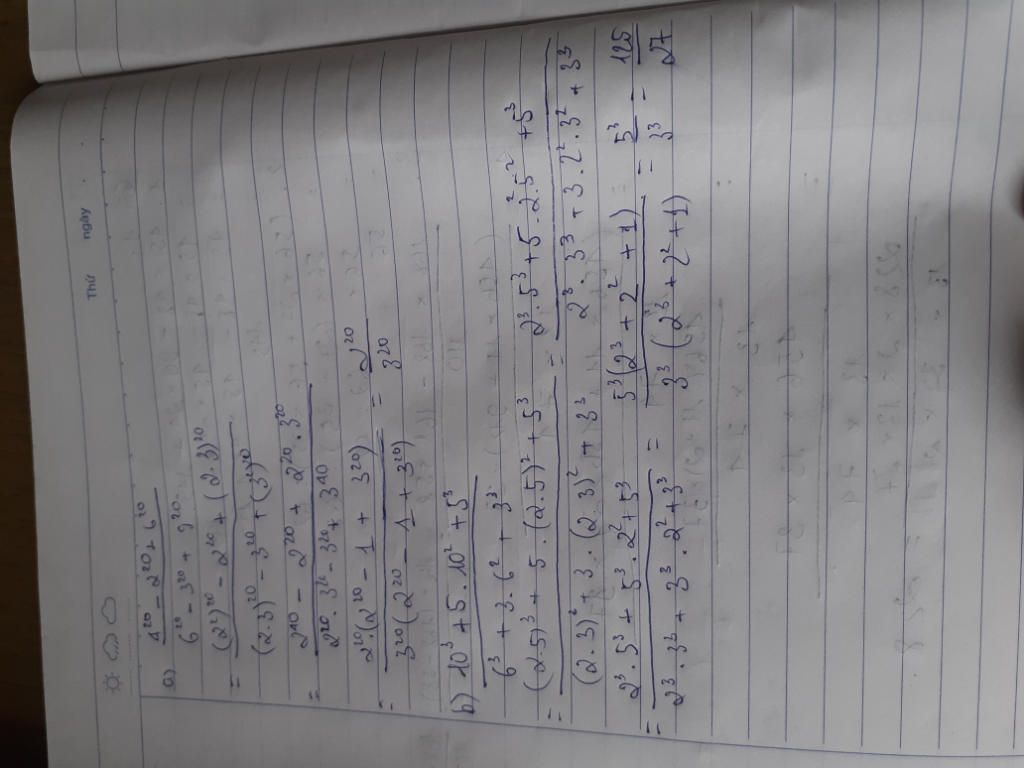 Thứ ngày
a) 4²⁰ - 2²⁰ + 6²⁰
6²⁰ - 3²⁰ + 9²⁰
= (2²)²⁰ - 2²⁰ + (2.3)²⁰
(2.3)²⁰ - 3²⁰ + (3²)²⁰
= 2⁴⁰ - 2²⁰ + 2²⁰.3²⁰
2²⁰.3²⁰ - 3²⁰ + 3⁴⁰
= 2²⁰.(2²⁰ - 1 + 3²⁰) = 2²⁰
3²⁰(2²⁰ - 1 + 3²⁰) 3²⁰
b) 10³ + 5.10² + 5³
6³ + 3.6² + 3³
= (2.5)³ + 5.(2.5)² + 5³ = 2³.5³ + 5.2².5² + 5³
(2.3)³ + 3.(2.3)² + 3³ 2³.3³ + 3.2².3² + 3³
= 2³.5³ + 5³.2² + 5³ = 5³(2³ + 2² + 1) = 5³ = 125
2³.3³ + 3³.2² + 3³ 3³(2³ + 2² + 1) 3³ 27